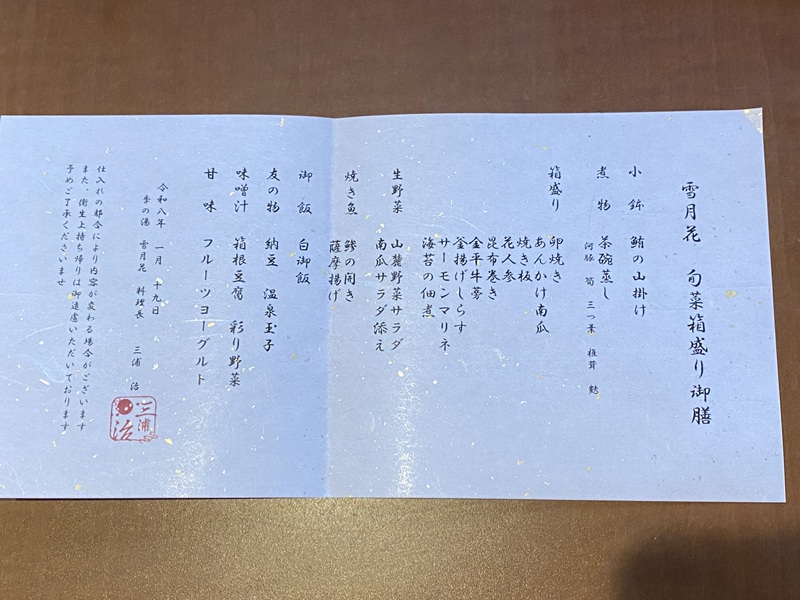 雪月花 旬菜箱盛り御膳
小鉢 鮪の山掛け
煮物 茶碗蒸し
河豚 筍 三つ葉 椎茸 麩
箱盛り 卵焼き
あんかけ南瓜
焼き板
花人参
昆布巻き
金平牛蒡
釜揚げしらす
サーモンマリネ
海苔の佃煮
生野菜 山麓野菜サラダ
南瓜サラダ添え
焼き魚 鯵の開き
薩摩揚げ
御飯 白御飯
友の物 納豆 温泉玉子
味噌汁 箱根豆腐 彩り野菜
甘味 フルーツヨーグルト
令和八年 一月 十九日
季の湯 雪月花 料理長 三浦 治
三浦治
仕入れの都合により内容が変わる場合がございます
また、衛生上持ち帰りは御遠慮いただいております
予めご了承くださいませ